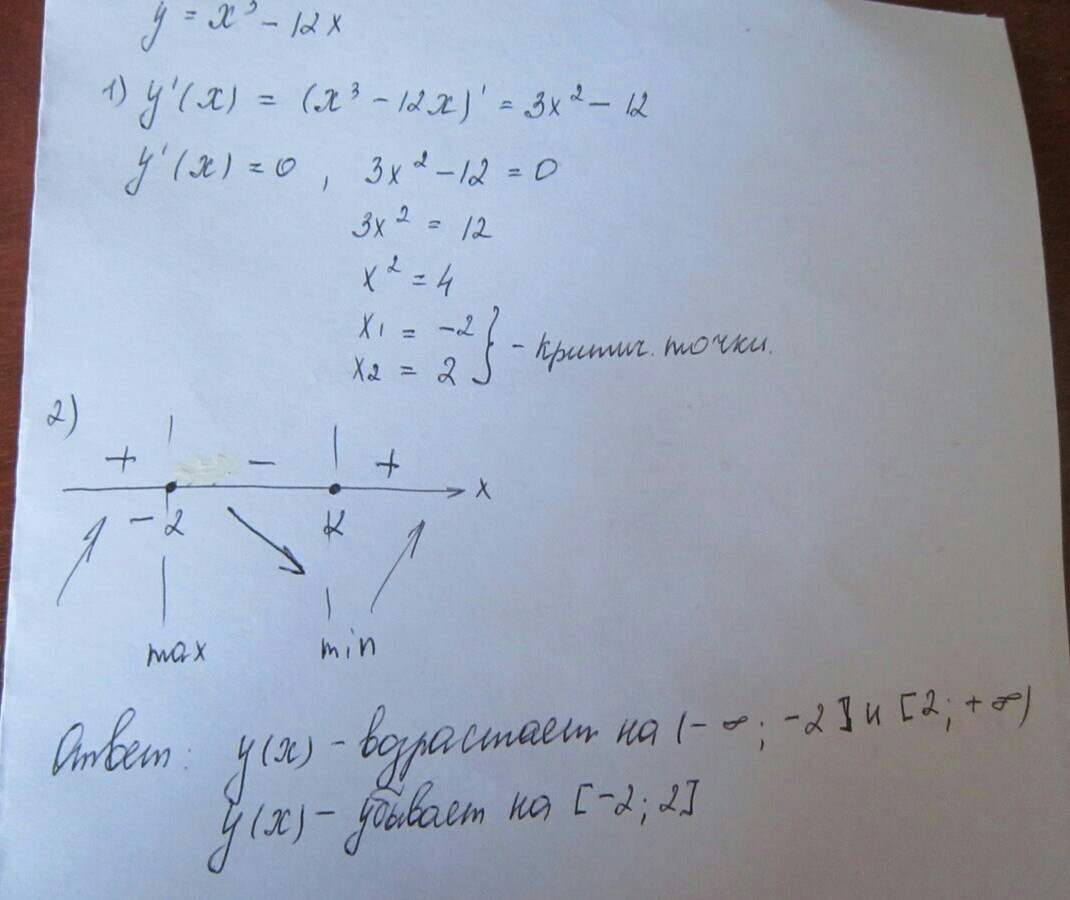 y = x³ - 12x
1) y'(x) = (x³ - 12x)' = 3x² - 12
y'(x) = 0 , 3x² - 12 = 0
3x² = 12
x² = 4
x1 = -2
x2 = 2 } - критич. точки.
2)
+ - +
-2 2 x
max min
Ответ: y(x) - возрастает на (-∞; -2] и [2; +∞)
y(x) - убывает на [-2; 2]